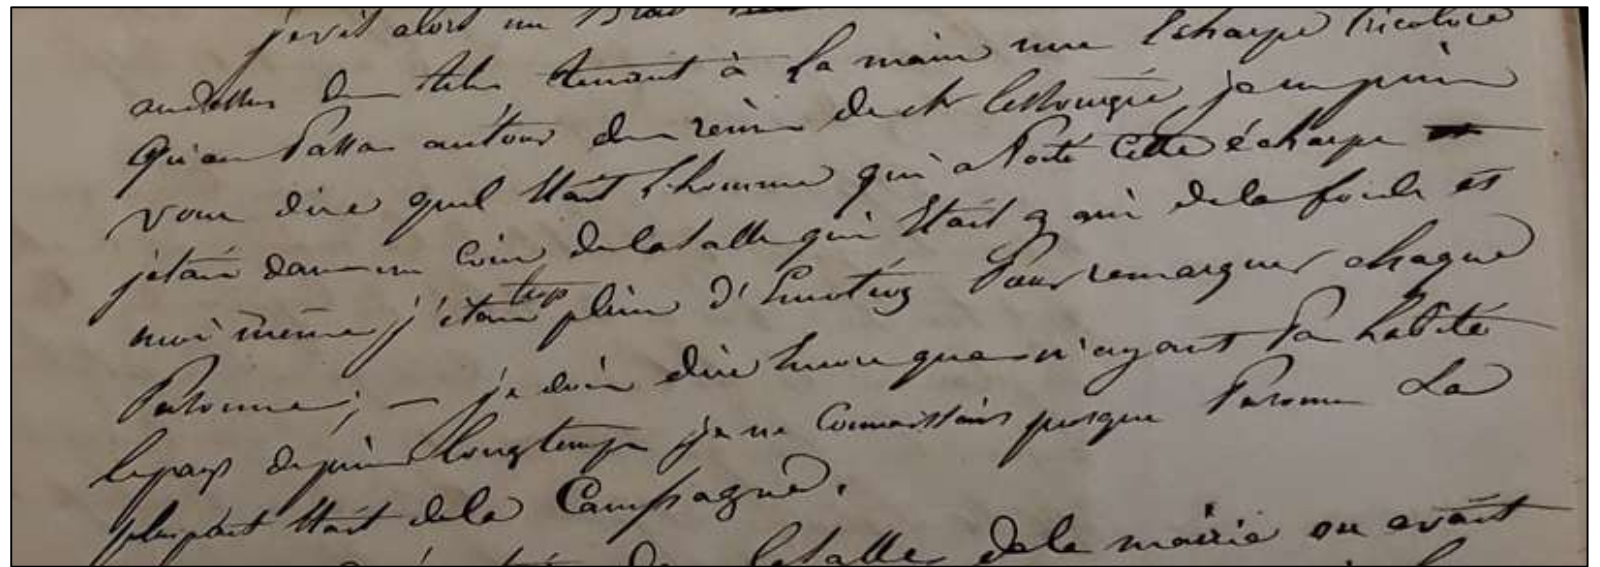 je vis alors un bras
au dessus des têtes tenant à la main une Echarpe tricolore
Qu'on Passa autour des reins de Mr je ne puis
vous dire quel était l'homme qui a Porté cette écharpe
j'étais dans un Coin de la salle qui était garni de la foule et
moi même j'étais trop plein d'Emotions Pour remarquer chaque
Personne ; — je dois dire encore que n'ayant Pas habité
le pays depuis longtemps je ne Connaissais presque Personne La
plupart était de la Campagne.
de la salle de la mairie ou avait